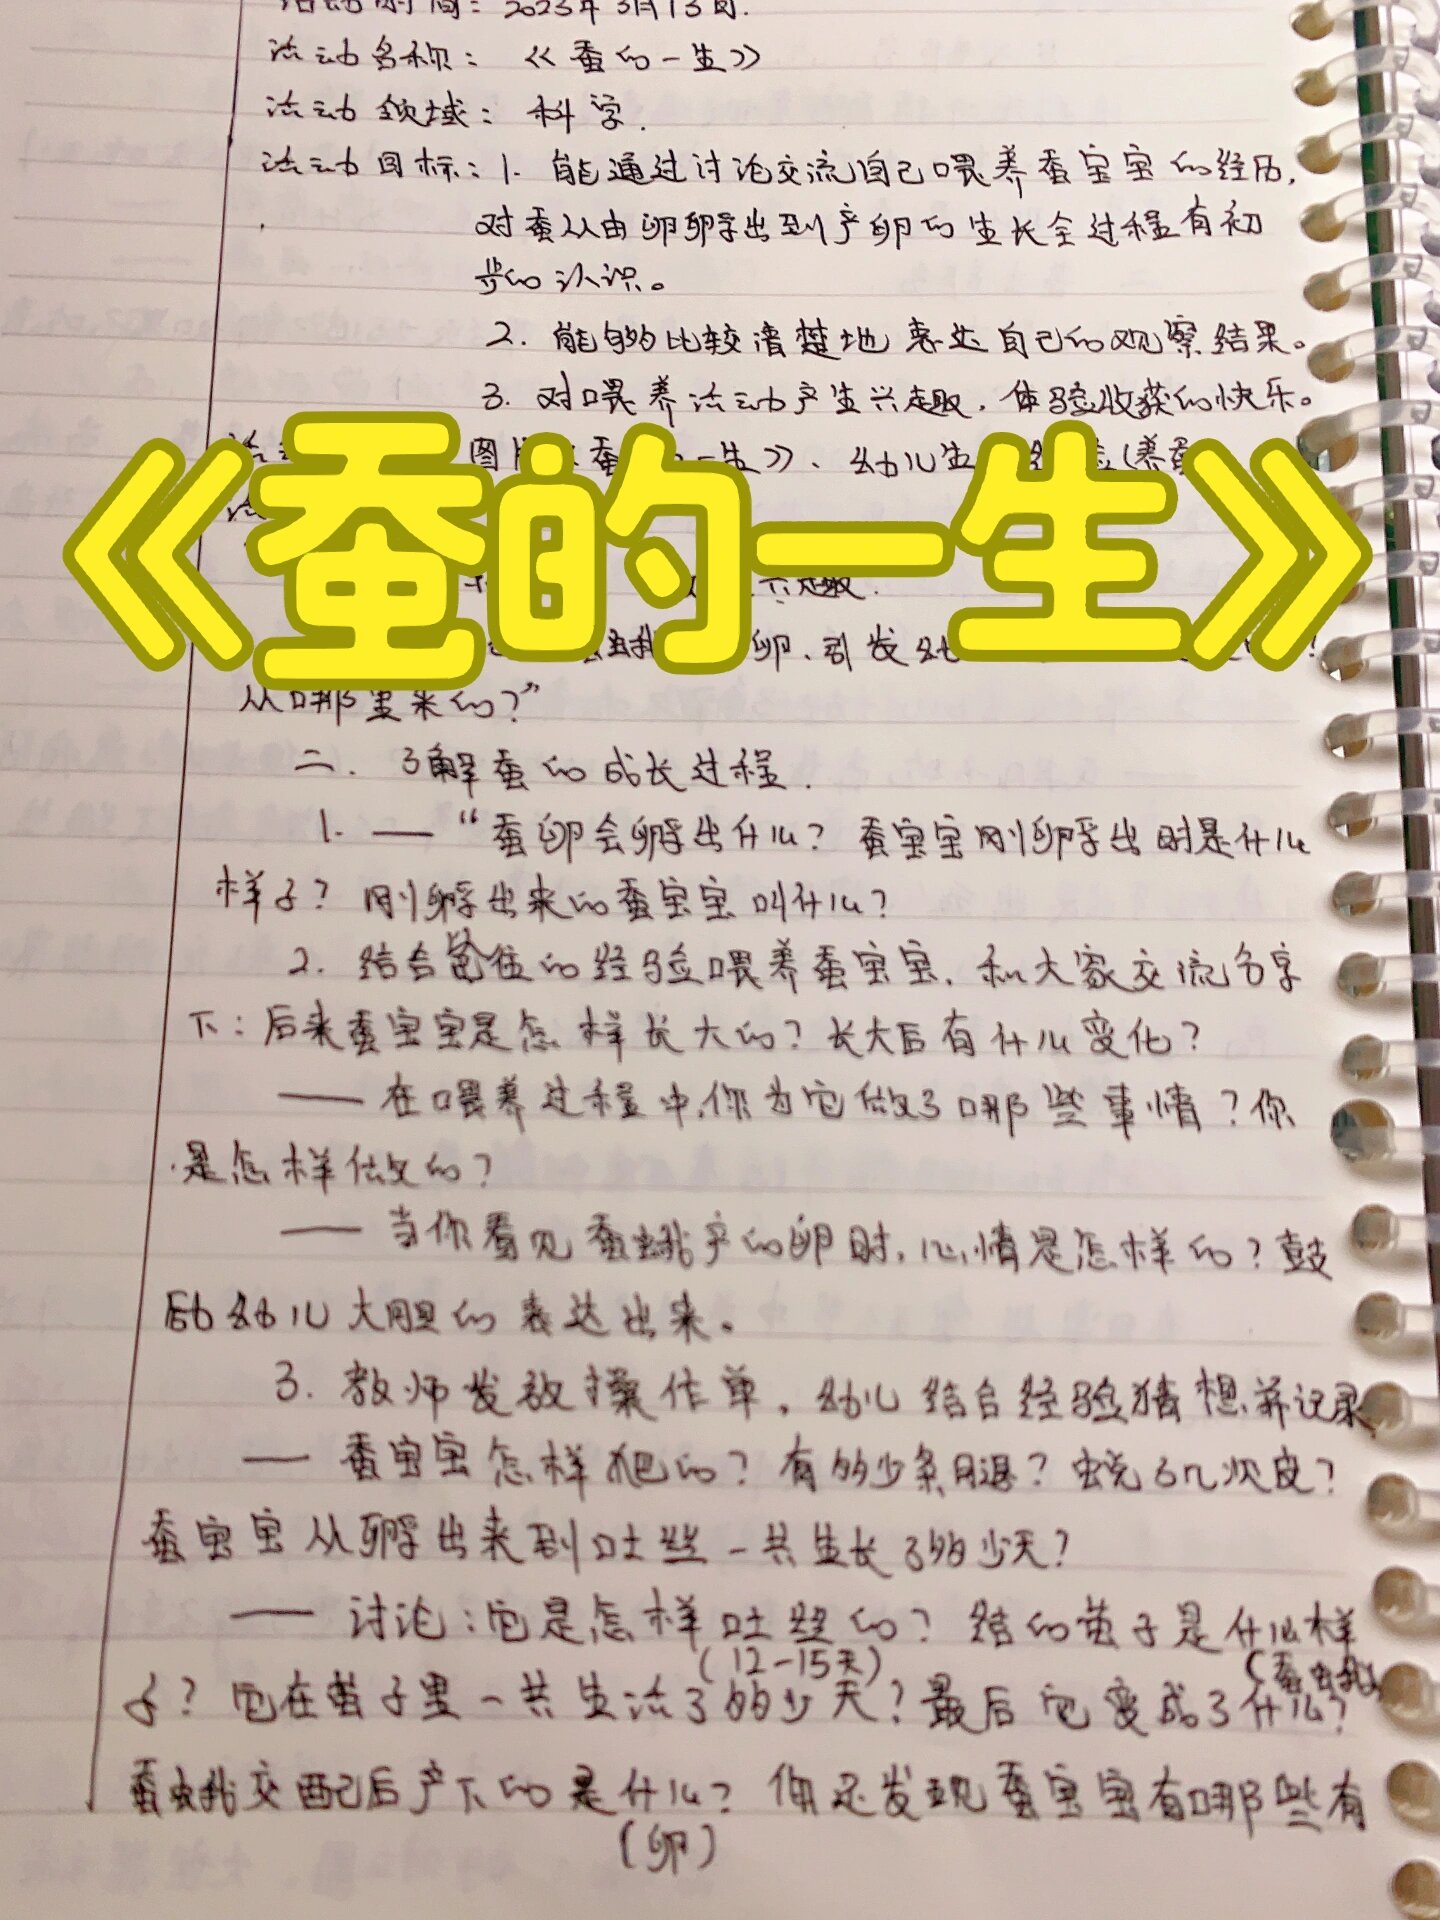 活动时间：2023年3月13日.
活动名称：《蚕的一生》
活动领域：科学.
活动目标：1. 能通过讨论交流自己喂养蚕宝宝的经历,
对蚕从由卵孵出到产卵的生长全过程有初
步的认识。
2. 能够比较清楚地表达自己的观察结果。
3. 对喂养活动产生兴趣, 体验收获的快乐。
图片 一生》、幼儿生 (养蚕
《蚕的一生》
兴趣.
卵, 引发幼
从哪里来的?”
二. 了解蚕的成长过程.
1. —“蚕卵会孵出什么? 蚕宝宝刚孵出时是什么
样子? 刚孵出来的蚕宝宝叫什么?
2. 结合 的经验喂养蚕宝宝, 和大家交流分享
下: 后来蚕宝宝是怎样长大的? 长大后有什么变化?
— 在喂养过程中, 你为它做了哪些事情? 你
是怎样做的?
— 当你看见蚕蛾产的卵时, 心情是怎样的? 鼓
励幼儿大胆的表达出来。
3. 教师发放操作单, 幼儿结合经验猜想并记录
— 蚕宝宝怎样爬的? 有多少条腿? 蜕了几次皮?
蚕宝宝从孵出来到吐丝一共生长了多少天?
— 讨论: 它是怎样吐丝的? 结的茧子是什么样
(12-15天) (蚕蛾)
子? 它在茧子里一共生活了多少天? 最后它变成了什么?
蚕蛾交配后产下的是什么? 你还发现蚕宝宝有哪些有
(卵)